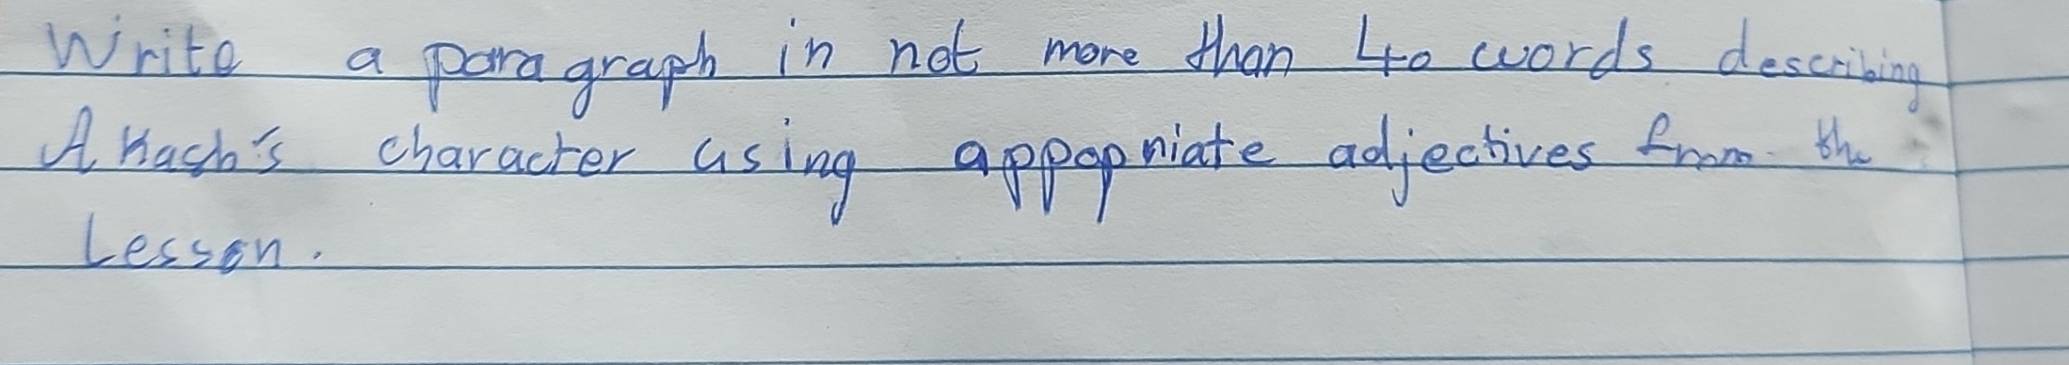 Write a paragraph in not more than 40 words describing
Akash's character using appopniate adjectives from the
Lesson.